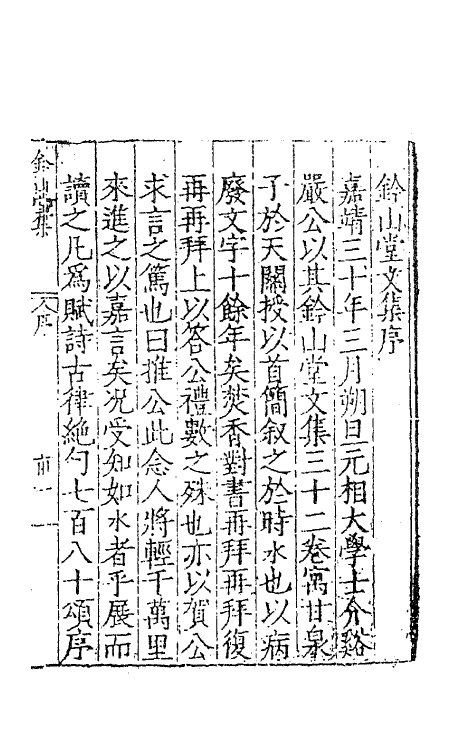 鈐山堂文集序
嘉靖三十年三月朔旦元相大學士介谿
嚴公以其鈐山堂文集三十二卷寓甘泉
子於天關授以首簡叙之於時水也以病
廢文字十餘年矣焚香對書再拜再拜復
再再拜上以答公禮數之殊也亦以賀公
求言之篤也曰推公此念人將輕千萬里
來進之以嘉言矣况受知如水者乎展而
讀之凡爲賦詩古律絶句七百八十頌序
鈐山堂集 序 前一